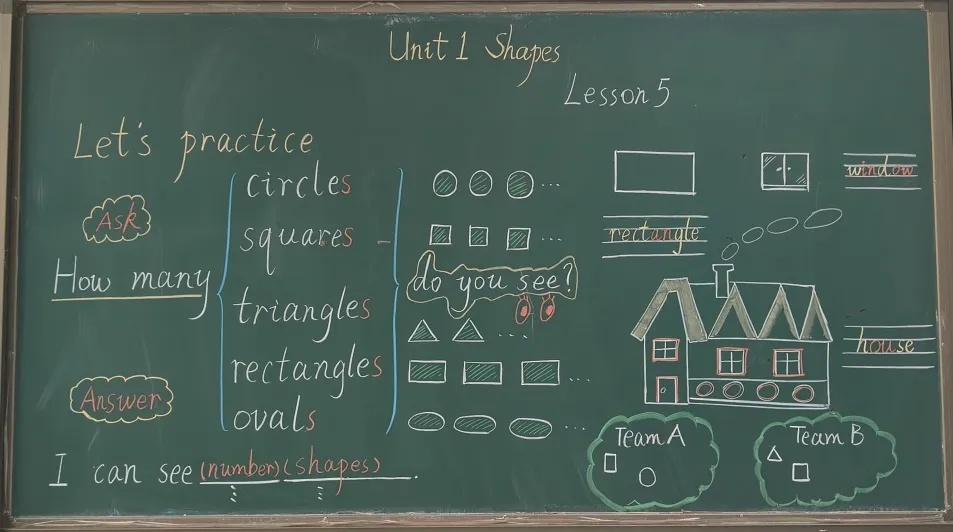 Unit 1 Shapes
Lesson 5
Let's practice
Ask
How many
circles
squares
triangles
rectangles
ovals
do you see?
Answer
I can see (number) (shapes).
window
rectangle
house
Team A
Team B